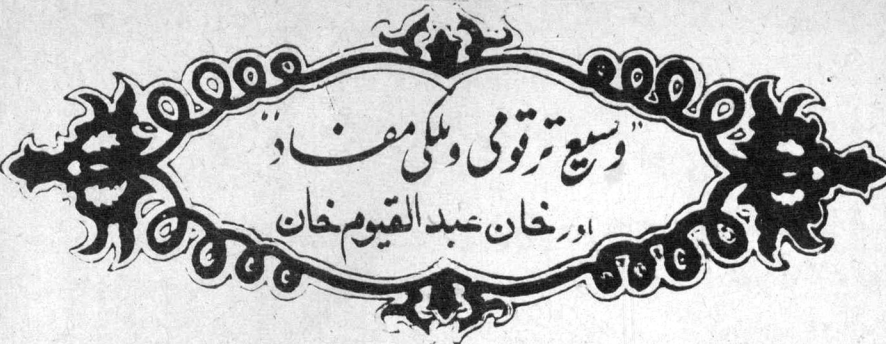 "وسیع تر قومی و ملکی مفاد"
اور خان عبدالقیوم خان